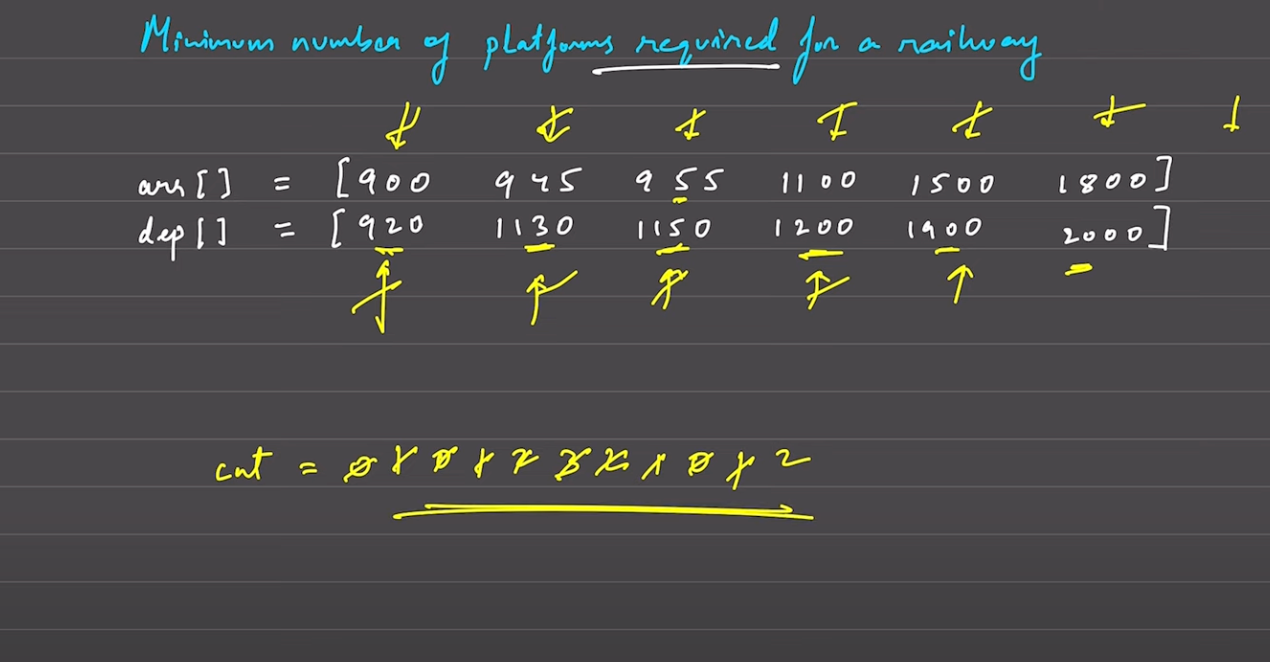 Minimum number of platforms required for a railway
arr[] = [900 945 955 1100 1500 1800]
dep[] = [920 1130 1150 1200 1900 2000]
cnt = 0 1 0 1 2 3 2 1 0 1 2